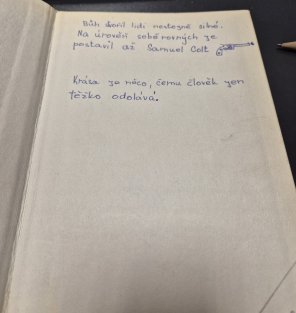 Bůh stvořil lidi nestejně silné.
Na úroveň sobě rovných je
postavil až Samuel Colt
Krása je něco, čemu člověk jen
těžko odolává.